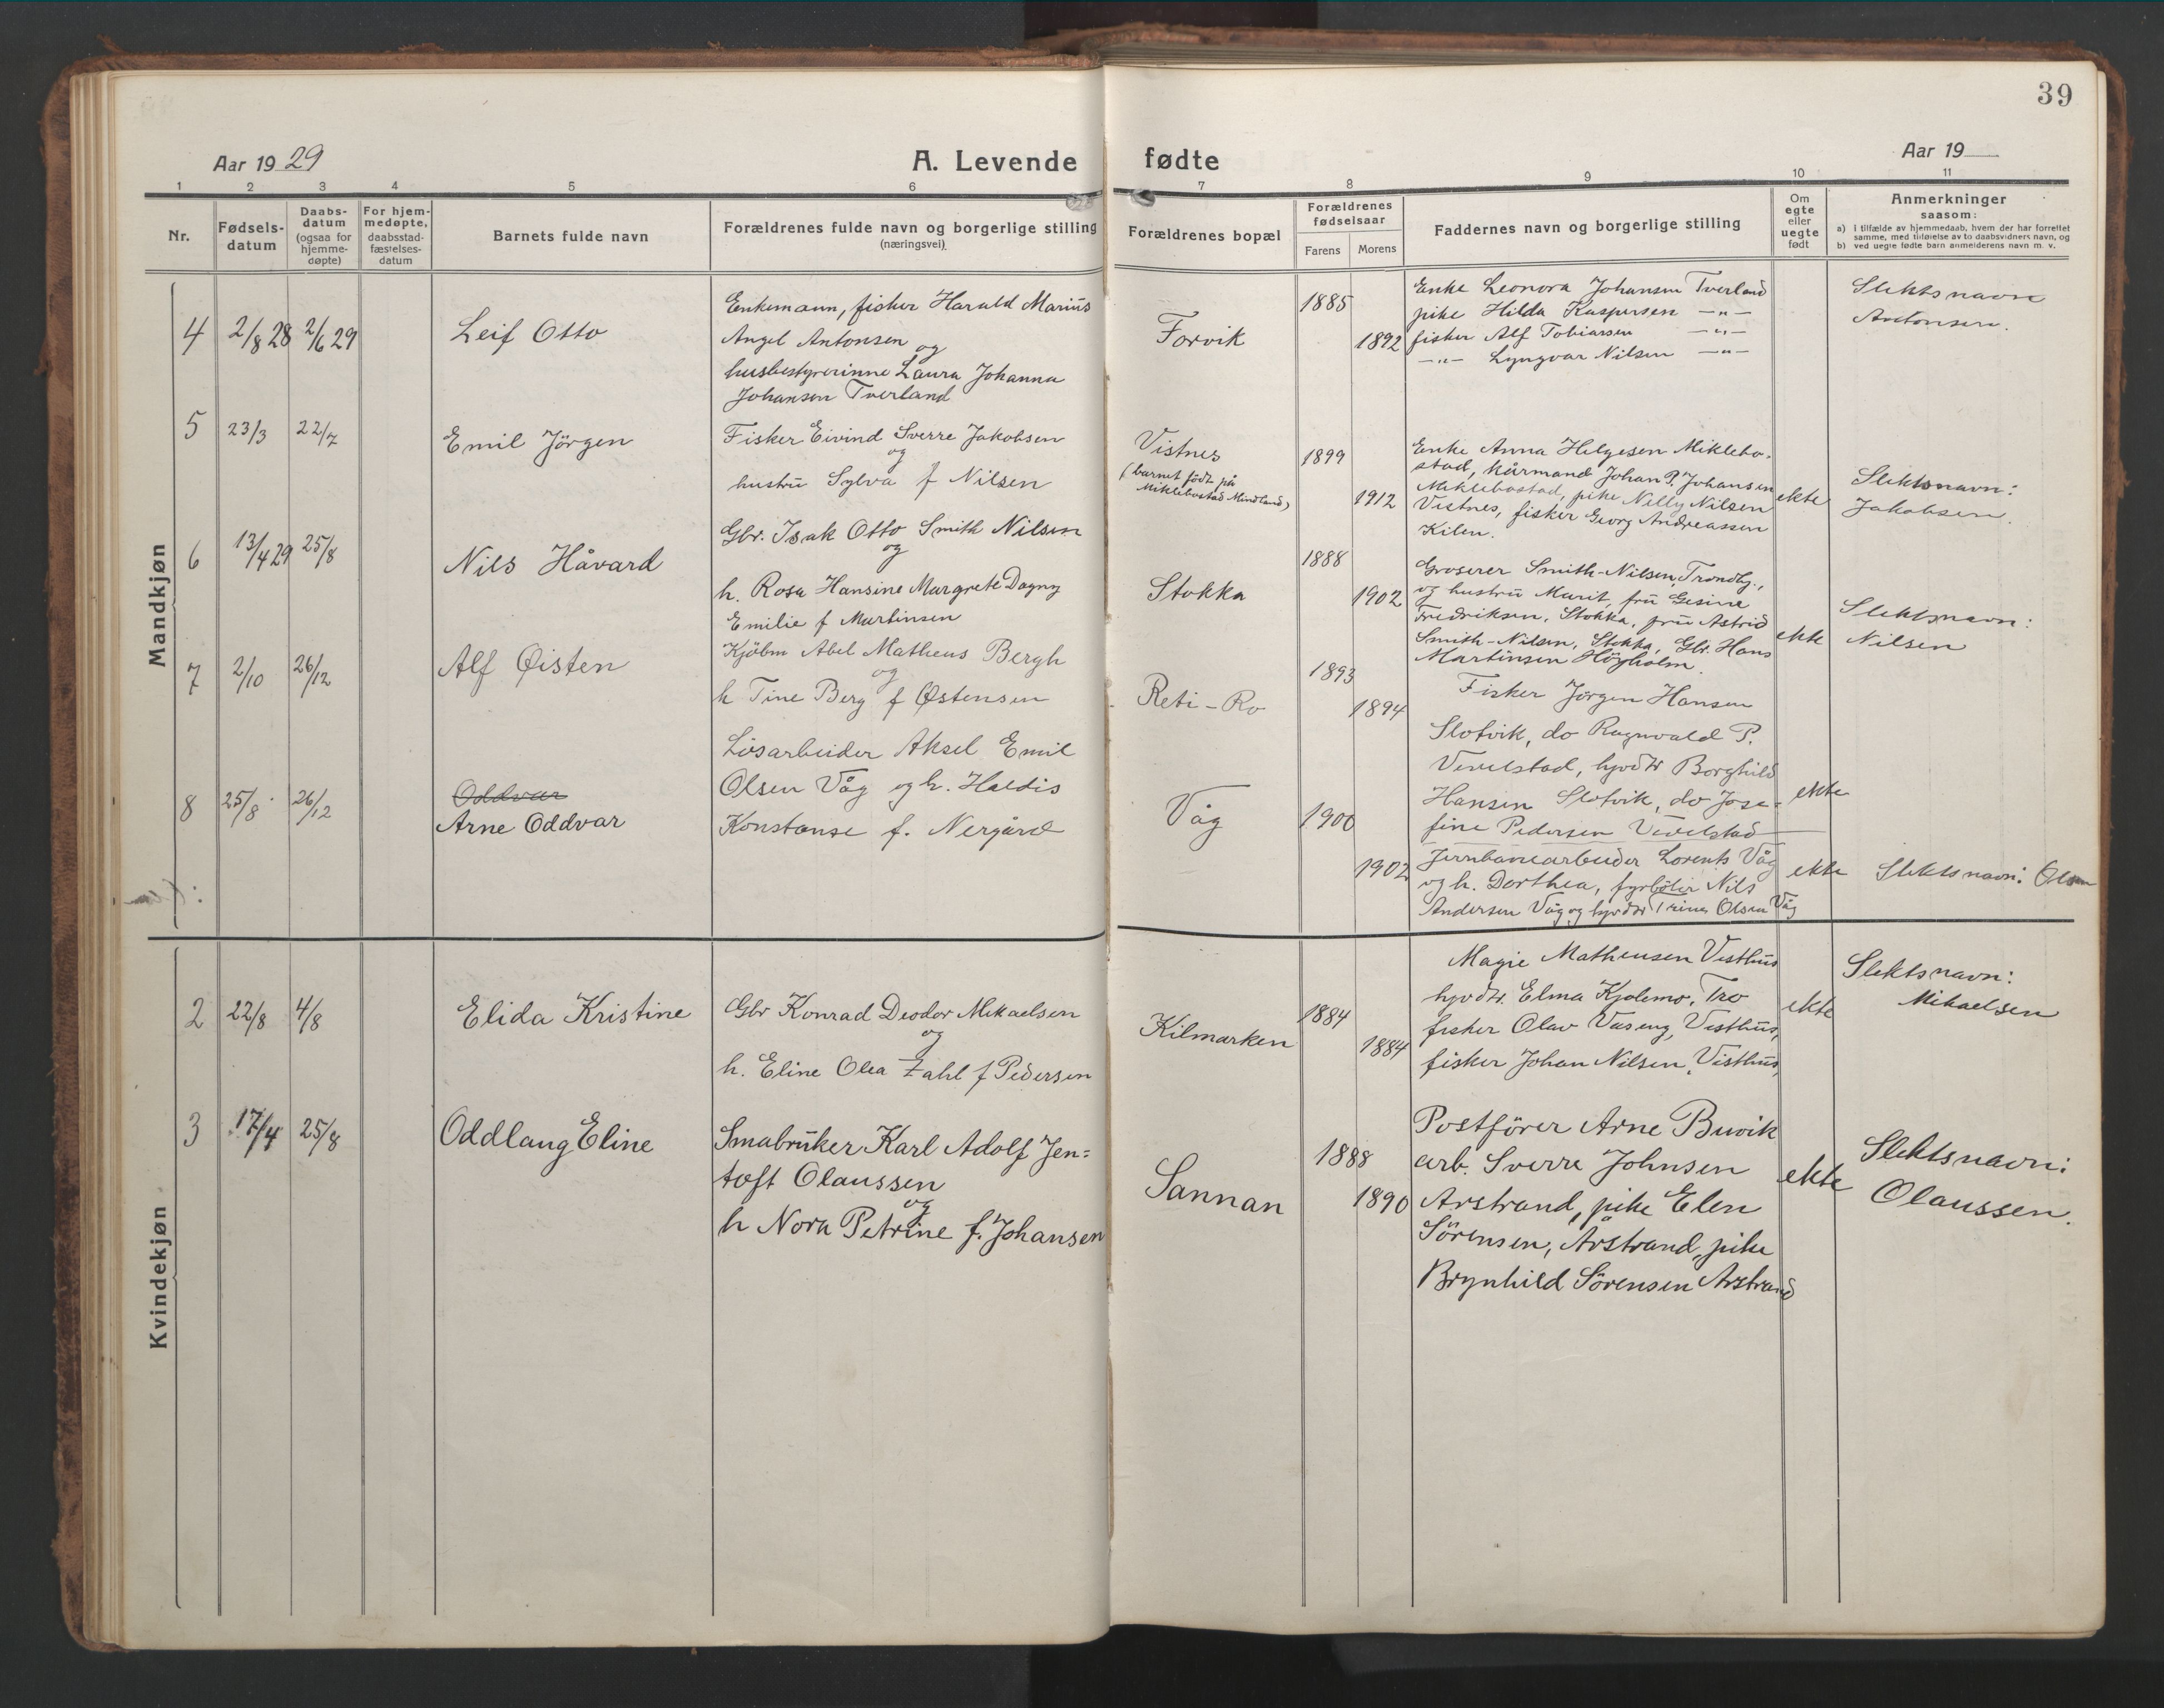 39
Aar 1929
A. Levende fødte
Aar 19
1 2 3 4 5 6 7 8 9 10 11
Nr.
Fødsels-
datum
Daabs-
datum
(ogsaa for
hjemme-
døpte)
For hjem-
medøpte,
daabsstad-
fæstelses-
datum
Barnets fulde navn
Forældrenes fulde navn og borgerlige stilling
(næringsvei)
Forældrenes bopæl
Forældrenes
fødselsaar
Farens Morens
Faddernes navn og borgerlige stilling
Om
egte
eller
uegte
født
Anmerkninger
saasom:
a) i tilfælde av hjemmedaab, hvem der har forrettet
samme, med tilføielse av to daabsvidners navn, og
b) ved uegte fødte barn anmelderens navn m. v.
Mandkjøn
4
2/8 28
2/6 29
Leif Otto
Enkemann, fisker Harald Marius
Angel Antonsen
og
husbestyrerinne Laura Johanna
Johansen Tverland
Forvik
1885
1892
Enke Leonora Johansen Tverland
pike Hilda Kaspersen —"—
fisker Alf Tobiassen —"—
—"— Lyngvar Nilsen —"—
Slektsnavn
Antonsen.
5
23/3
22/7
Emil Jörgen
Fisker Eivind Sverre Jakobsen
og
hustru Sylva f Nilsen
Vistnes
(barnet födt på
Miklebostad Mindland)
1899
1912
Enke Anna Helgesen Miklebo-
stad, kårmand Johan P. Johansen
Miklebostad, pike Nelly Nilsen
Vistnes, fisker Georg Andreassen
Kilen.
ekte
Slektsnavn:
Jakobsen.
6
13/4 29
25/8
Nils Håvard
Gbr. Isak Otto Smith Nilsen
og
h. Rosa Hansine Margrete Dagny
Emilie f Martinsen
Stokka
1888
1902
Groserer Smith-Nilsen, Trondhj.,
og hustru Marit, fru Gesine
Fredriksen, Stokka, fru Astrid
Smith-Nilsen, Stokka, Gbr. Hans
Martinsen Högholm
ekte
Slektsnavn:
Nilsen
7
2/10
26/12
Alf Øisten
Kjöbm Abel Matheus Bergh
og
h Tine Berg f Østensen
Reti-Ro
1893
1894
Fisker Jørgen Hansen
Slotvik, do Ragnvald P.
Vevelstad, hjvdtr Borghild
Hansen Slotvik, do Jose-
fine Pedersen Vevelstad
ekte
8
25/8
26/12
Oddvar
Arne Oddvar
Lösarbeider Aksel Emil
Olsen Våg og h. Haldis
Konstanse f. Nergård
Våg
1900
1902
Jernbanearbeider Lorents Våg
og h. Dorthea, fyrböter Nils
Andersen Våg og hjvdtr Trine Olsen Våg
ekte
Slektsnavn: Olsen
Kvindekjøn
2
22/8
4/8
Elida Kristine
Gbr Konrad Deodor Mikaelsen
og
h. Eline Olea Zahl f Pedersen
Kilmarken
1884
1884
Magie Matheusen Visthus
hjvdtr. Elma Kjolemo, Tro
fisker Olav Vaseng, Visthus,
fisker Johan Nilsen, Visthus,
ekte
Slektsnavn:
Mikaelsen
3
17/4
25/8
Oddlaug Eline
Småbruker Karl Adolf Jen=
toft Olaussen
og
h Nora Petrine f. Johansen
Sannan
1888
1890
Postförer Arne Buvik
arb. Sverre Johnsen
Årstrand, pike Elen
Sörensen, Årstrand, pike
Brynhild Sörensen Årstrand
ekte
Slektsnavn:
Olaussen.